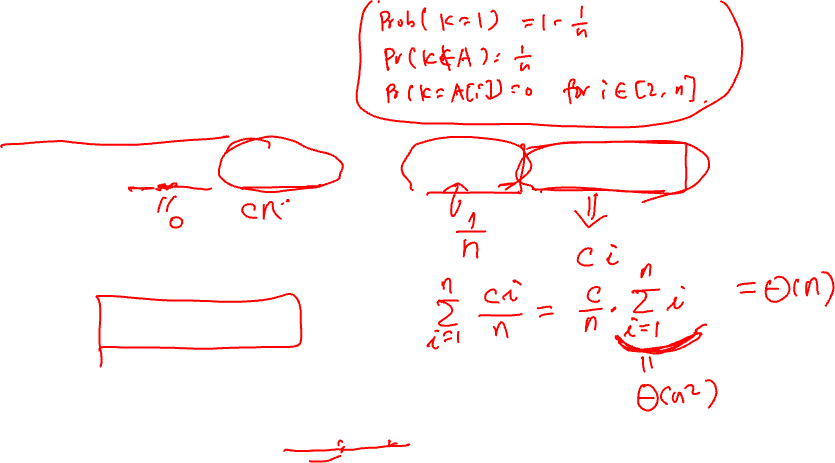 Prob(K=1) = 1 - 1/n
Pr(K∉A) = 1/n
Pr(K=A[i]) = 0 for i ∈ [2, n].
0 cn
1/n
c i
∑_{i=1}^{n} ci/n = c/n · ∑_{i=1}^{n} i = Θ(n)
Θ(n²)